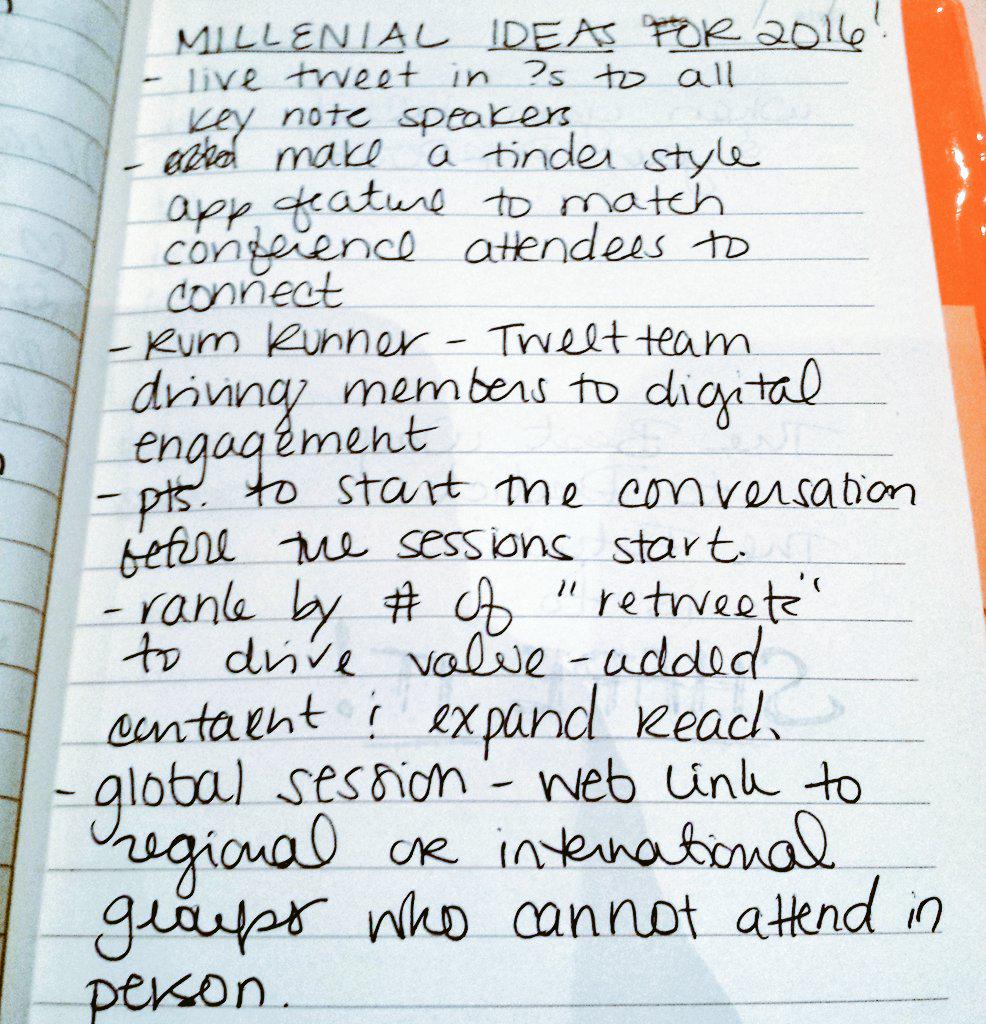 MILLENIAL IDEAS FOR 2016!
- live tweet in ?s to all
key note speakers
- make a tinder style
app feature to match
conference attendees to
connect
- Rum Runner - Tweet team
driving members to digital
engagement
- pts. to start the conversation
before the sessions start.
- rank by # of "retweets"
to drive value-added
contaent & expand Reach.
- global session - web link to
regional or international
groups who cannot attend in
person.